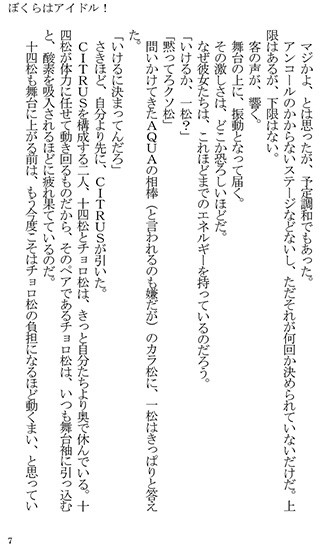 ぼくらはアイドル！
マジかよ、とは思ったが、予定調和でもあった。
アンコールのかからないステージなどないし、ただそれが何回か決められていないだけだ。上
限はあるが、下限はない。
客の声が、響く。
舞台の上に、振動となって届く。
その激しさは、どこか恐ろしいほどだ。
なぜ彼女たちは、これほどまでのエネルギーを持っているのだろう。
「いけるか、一松？」
「黙ってろクソ松」
問いかけてきたＡＱＵＡの相棒（と言われるのも嫌だが）のカラ松に、一松はきっぱりと答え
た。
「いけるに決まってんだろ」
さきほど、自分より先に、ＣＩＴＲＵＳが引いた。
ＣＩＴＲＵＳを構成する二人、十四松とチョロ松は、きっと自分たちより奥で休んでいる。十
四松が体力に任せて動き回るものだから、そのペアであるチョロ松は、いつも舞台袖に引っ込む
と、酸素を吸入されるほどに疲れ果てているのだ。
十四松も舞台に上がる前は、もう今度こそはチョロ松の負担になるほど動くまい、と思ってい
7